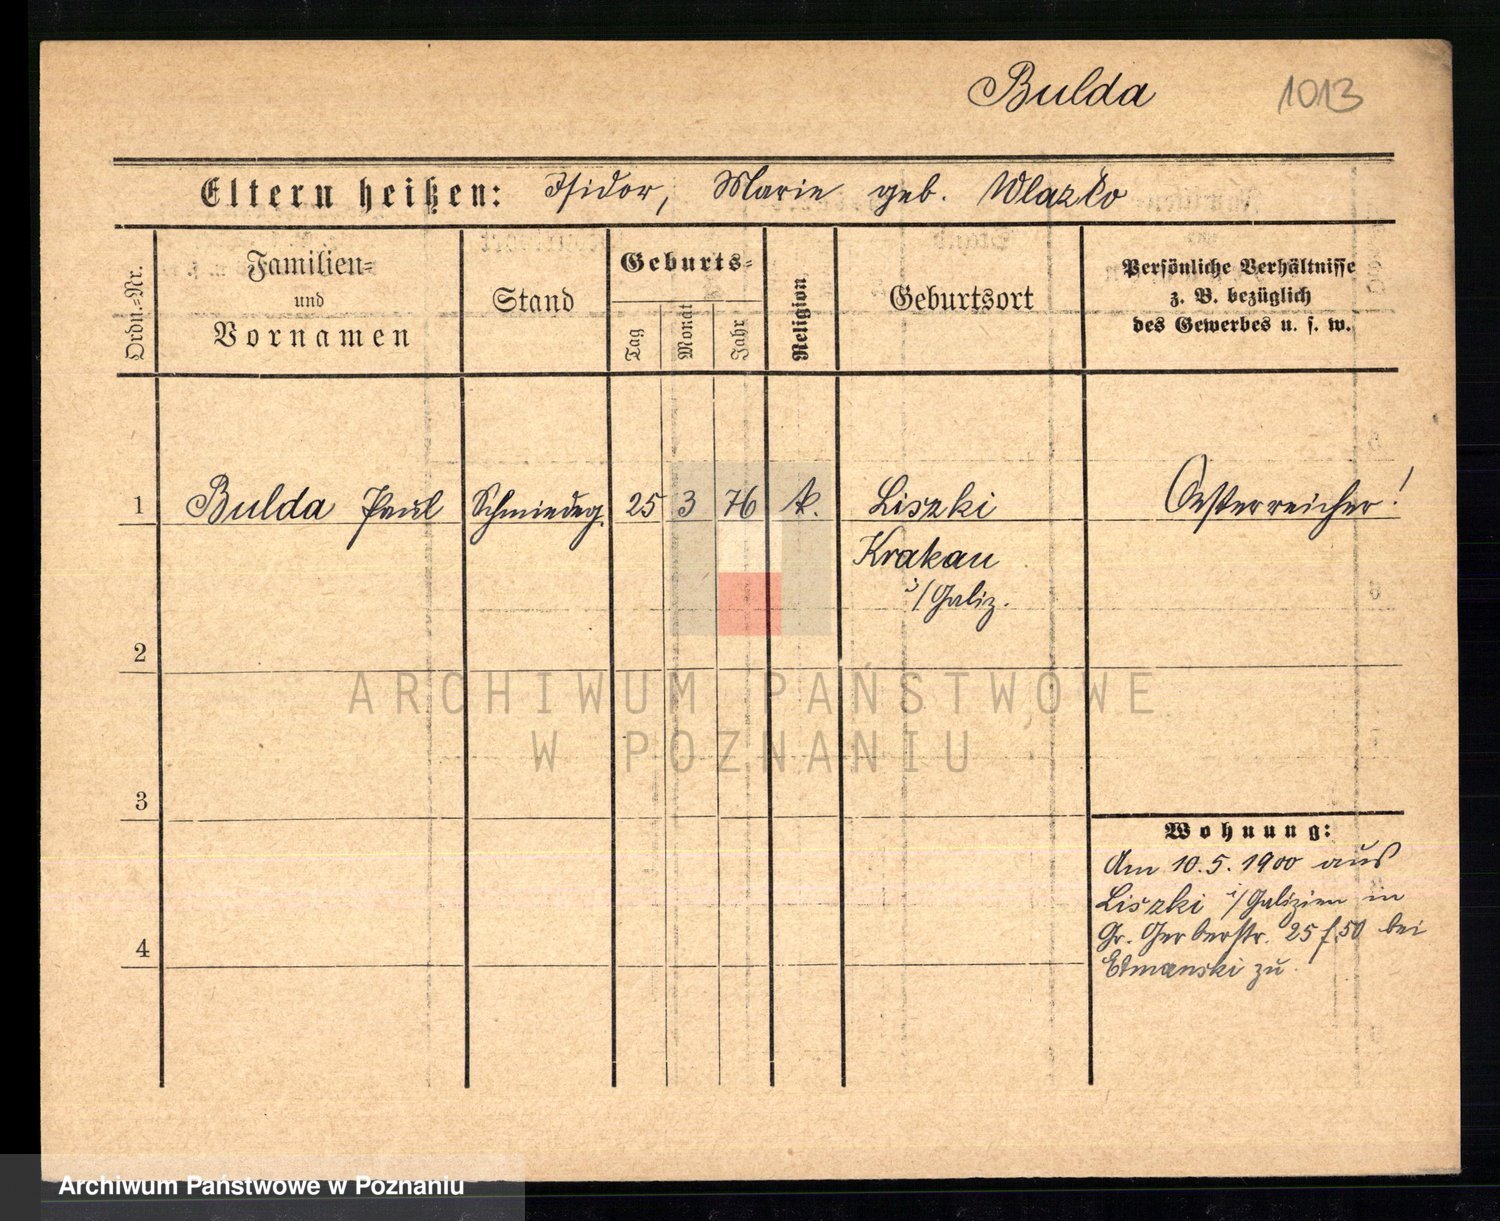 Bulda 1013
Eltern heißen: Isidor, Marie geb. Wlazło
Ordn.-Nr.
Familien-
und
Vornamen
Stand
Geburts-
Tag
Monat
Jahr
Religion
Geburtsort
Persönliche Verhältnisse
z. B. bezüglich
des Gewerbes u. s. w.
1 Bulda Paul Schmiedeg. 25 3 76 k. Liszki Oesterreicher!
Krakau
i/Galiz.
2
ARCHIWUM PAŃSTWOWE
W POZNANIU
3
Wohnung:
Am 10.5.1900 aus
Liszki i/Galizien in
Gr. Gerberstr. 25 f. 50 bei
4
Edmanski zu.
Archiwum Państwowe w Poznaniu